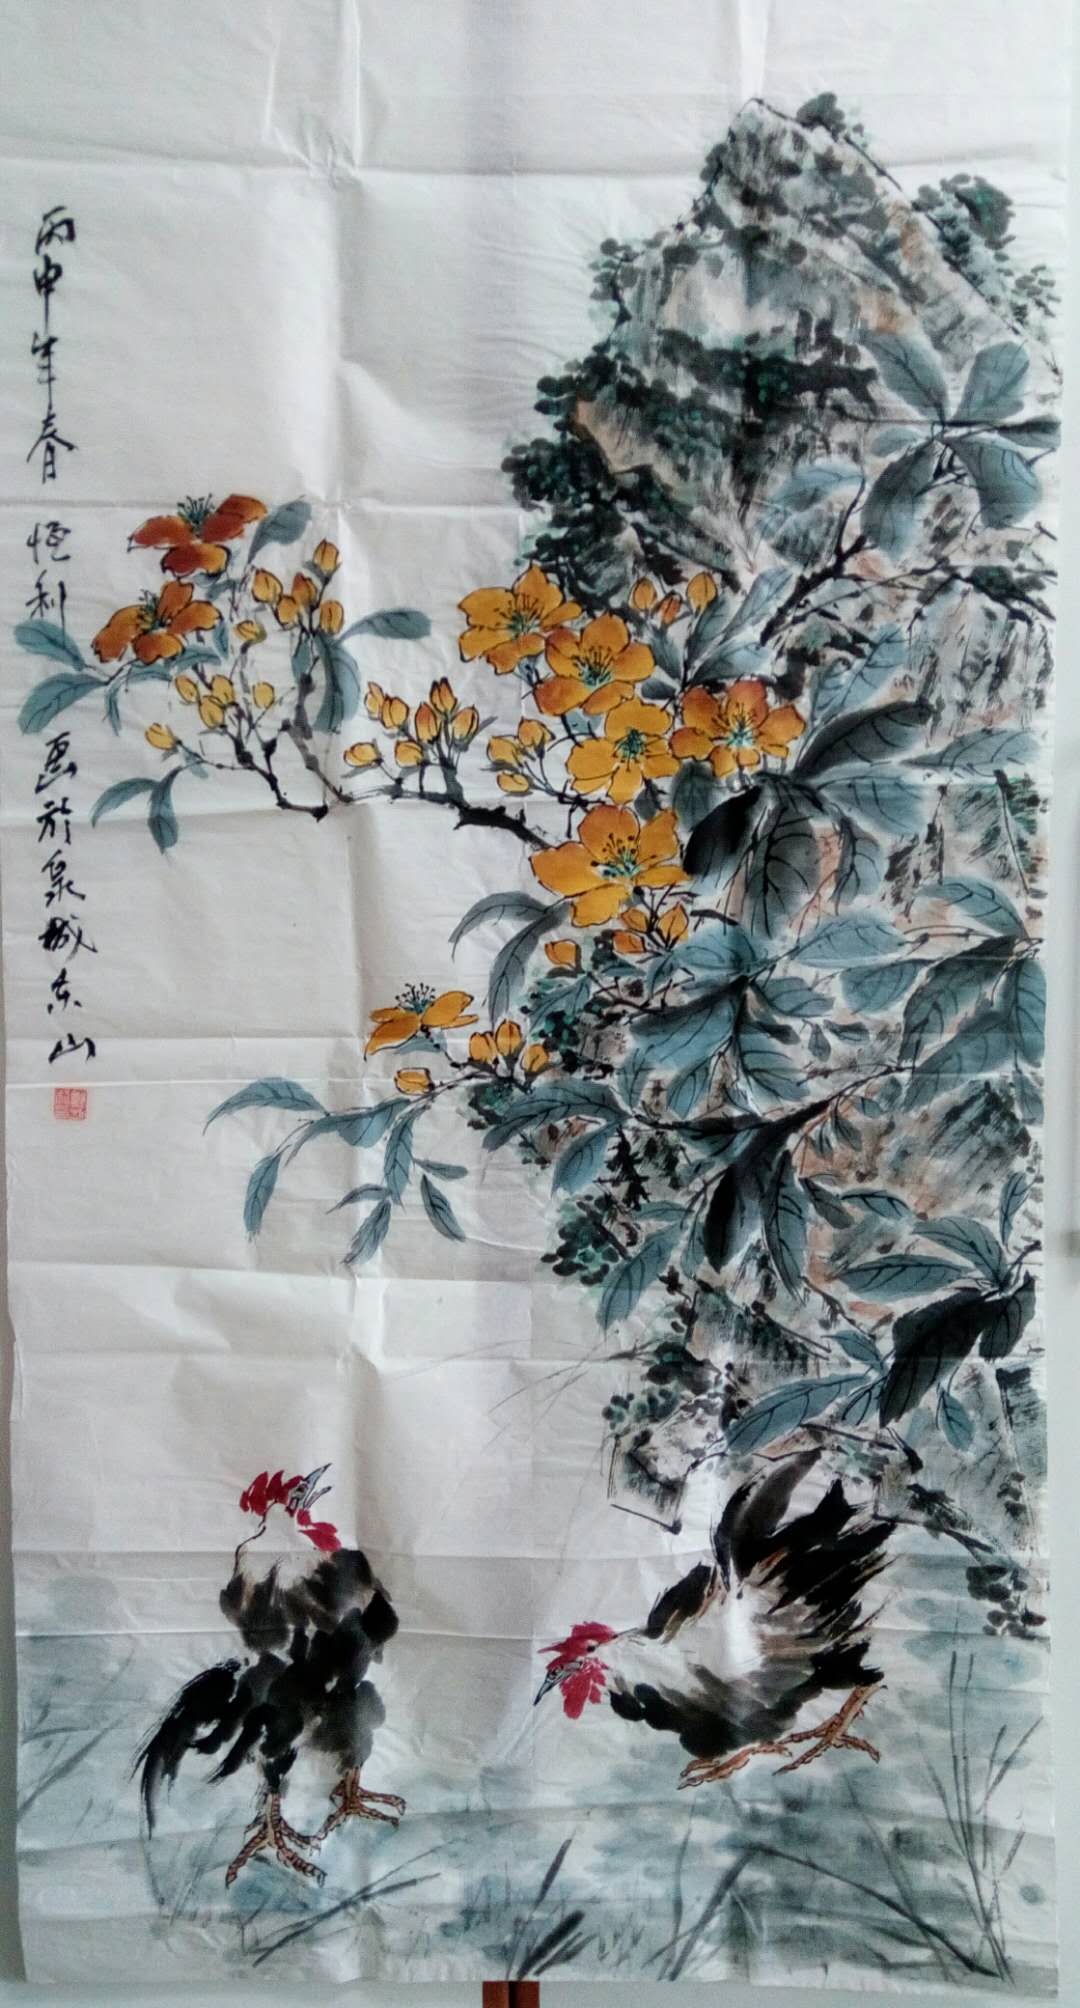 丙申年春 恒利 画於泉城东山